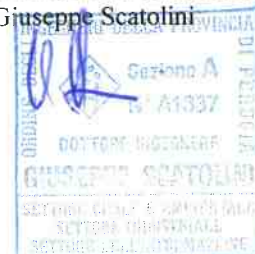 Giuseppe Scatolini
ORDINE DEGLI INGEGNERI DELLA PROVINCIA DI PERUGIA
Sezione A
N° A1337
DOTTORE INGEGNERE
GIUSEPPE SCATOLINI
SETTORE CIVILE E AMBIENTALE
SETTORE INDUSTRIALE
SETTORE DELL'INFORMAZIONE